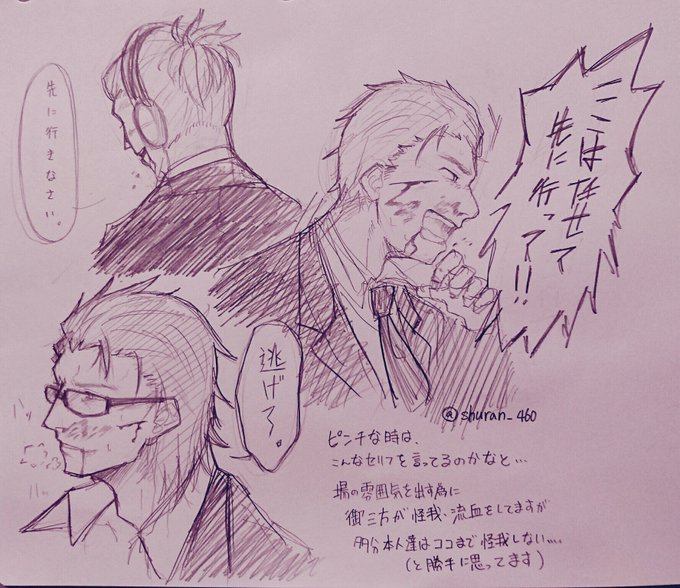 先に行きなさい。
ここは任せて
先に行って!!
逃げろ。
@shuran_460
ピンチな時は、
こんなセリフを言ってるのかなと…
場の雰囲気を出す為に
御三方が怪我、流血をしてますが
多分本人達はココまで怪我しない….
(と勝手に思ってます)
ハッ
ハッ